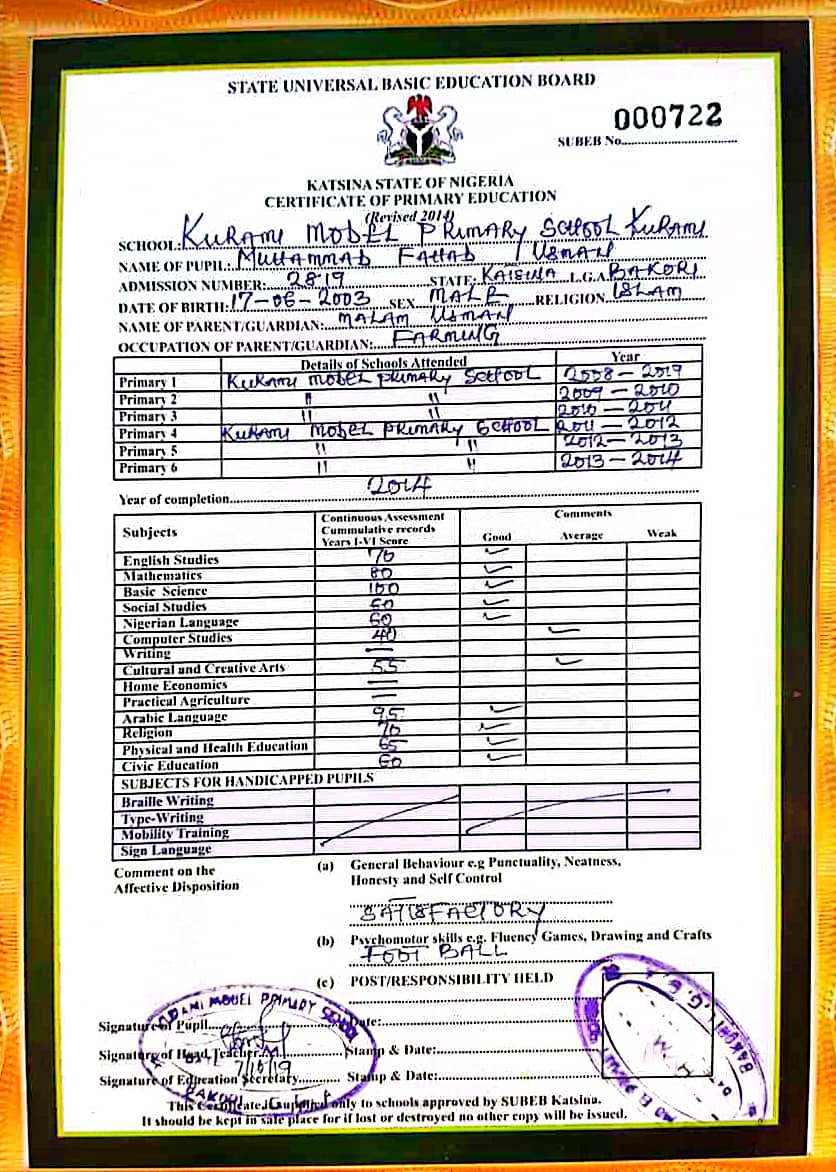 STATE UNIVERSAL BASIC EDUCATION BOARD
000722
SUBEB No.
KATSINA STATE OF NIGERIA
CERTIFICATE OF PRIMARY EDUCATION
(Revised 2014)
SCHOOL: KURAMI MODEL PRIMARY SCHOOL KURAMI
NAME OF PUPIL: MUHAMMAD FAHAD USMAN
ADMISSION NUMBER: 2819 STATE: KATSINA L.G.A BAKORI
DATE OF BIRTH: 17-06-2003 SEX MALE RELIGION ISLAM
NAME OF PARENT/GUARDIAN: MALAM USMAN
OCCUPATION OF PARENT/GUARDIAN: FARMING
Details of Schools Attended Year
Primary 1 KURAMI MODEL PRIMARY SCHOOL 2008 - 2019
Primary 2 " " 2009 - 2010
Primary 3 " " 2010 - 2011
Primary 4 KURAMI MODEL PRIMARY SCHOOL 2011 - 2012
Primary 5 " " 2012 - 2013
Primary 6 " " 2013 - 2014
Year of completion 2014
Subjects Continuous Assessment Cummulative records Years I-VI Score Comments
Good Average Weak
English Studies 70 ✓
Mathematics 80 ✓
Basic Science 100 ✓
Social Studies 60 ✓
Nigerian Language 60 ✓
Computer Studies 40 ✓
Writing —
Cultural and Creative Arts 55 ✓
Home Economics —
Practical Agriculture —
Arabic Language 95 ✓
Religion 70 ✓
Physical and Health Education 65 ✓
Civic Education 60 ✓
SUBJECTS FOR HANDICAPPED PUPILS
Braille Writing
Type-Writing
Mobility Training
Sign Language
Comment on the Affective Disposition
(a) General Behaviour e.g Punctuality, Neatness,
Honesty and Self Control
SATISFACTORY
(b) Psychomotor skills e.g. Fluency Games, Drawing and Crafts
FOOT BALL
(c) POST/RESPONSIBILITY HELD
MODEL PRIMARY SCHOOL
Signature of Pupil Date:
Signature of Head Teacher Stamp & Date:
7/10/19
Signature of Education Secretary Stamp & Date:
BAKORI
This Certificate is supplied only to schools approved by SUBEB Katsina.
It should be kept in safe place for if lost or destroyed no other copy will be issued.